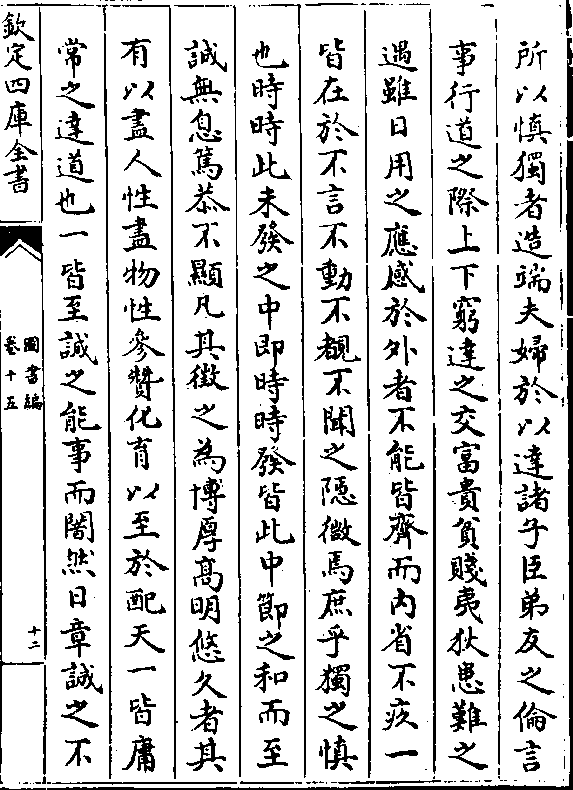 所以慎獨者造端夫婦於以達諸子臣弟友之倫言
事行道之際上下窮達之交富貴貧賤夷狄患難之
遇雖日用之應感於外者不能皆齊而内省不疚一
皆在於不言不動不覩不聞之隠微焉庶乎獨之慎
也時時此未發之中即時時發皆此中節之和而至
誠無息篤恭不顯凡其徴之為博厚髙明悠久者其
有以盡人性盡物性參贊化育以至於配天一皆庸
常之達道也一皆至誠之能事而闇然日章誠之不
欽定四庫全書
圖書編
卷十五
十二